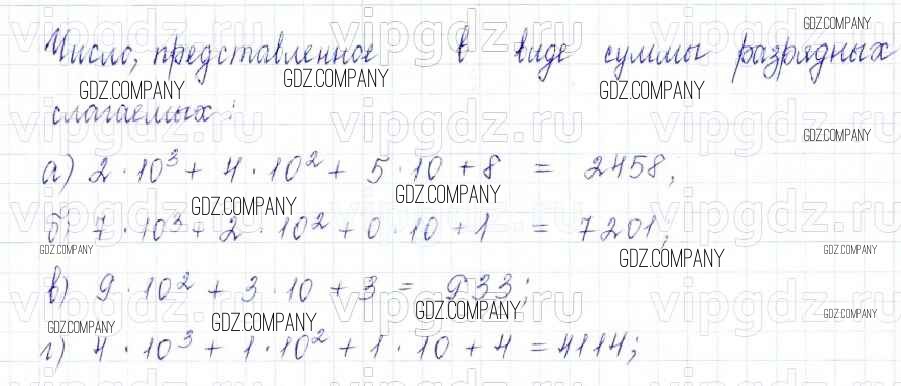 GDZ.COMPANY
Число, представленное в виде суммы разрядных
GDZ.COMPANY GDZ.COMPANY GDZ.COMPANY
слагаемых:
vipgdz.ru vipgdz.ru vipgdz.ru
GDZ.COMPANY
а) 2·10³ + 4·10² + 5·10 + 8 = 2458;
GDZ.COMPANY GDZ.COMPANY
б) 7·10³ + 2·10² + 0·10 + 1 = 7201;
GDZ.COMPANY GDZ.COMPANY GDZ.COMPANY
в) 9·10² + 3·10 + 3 = 933;
GDZ.COMPANY GDZ.COMPANY GDZ.COMPANY GDZ.COMPANY
г) 4·10³ + 1·10² + 1·10 + 4 = 4114;